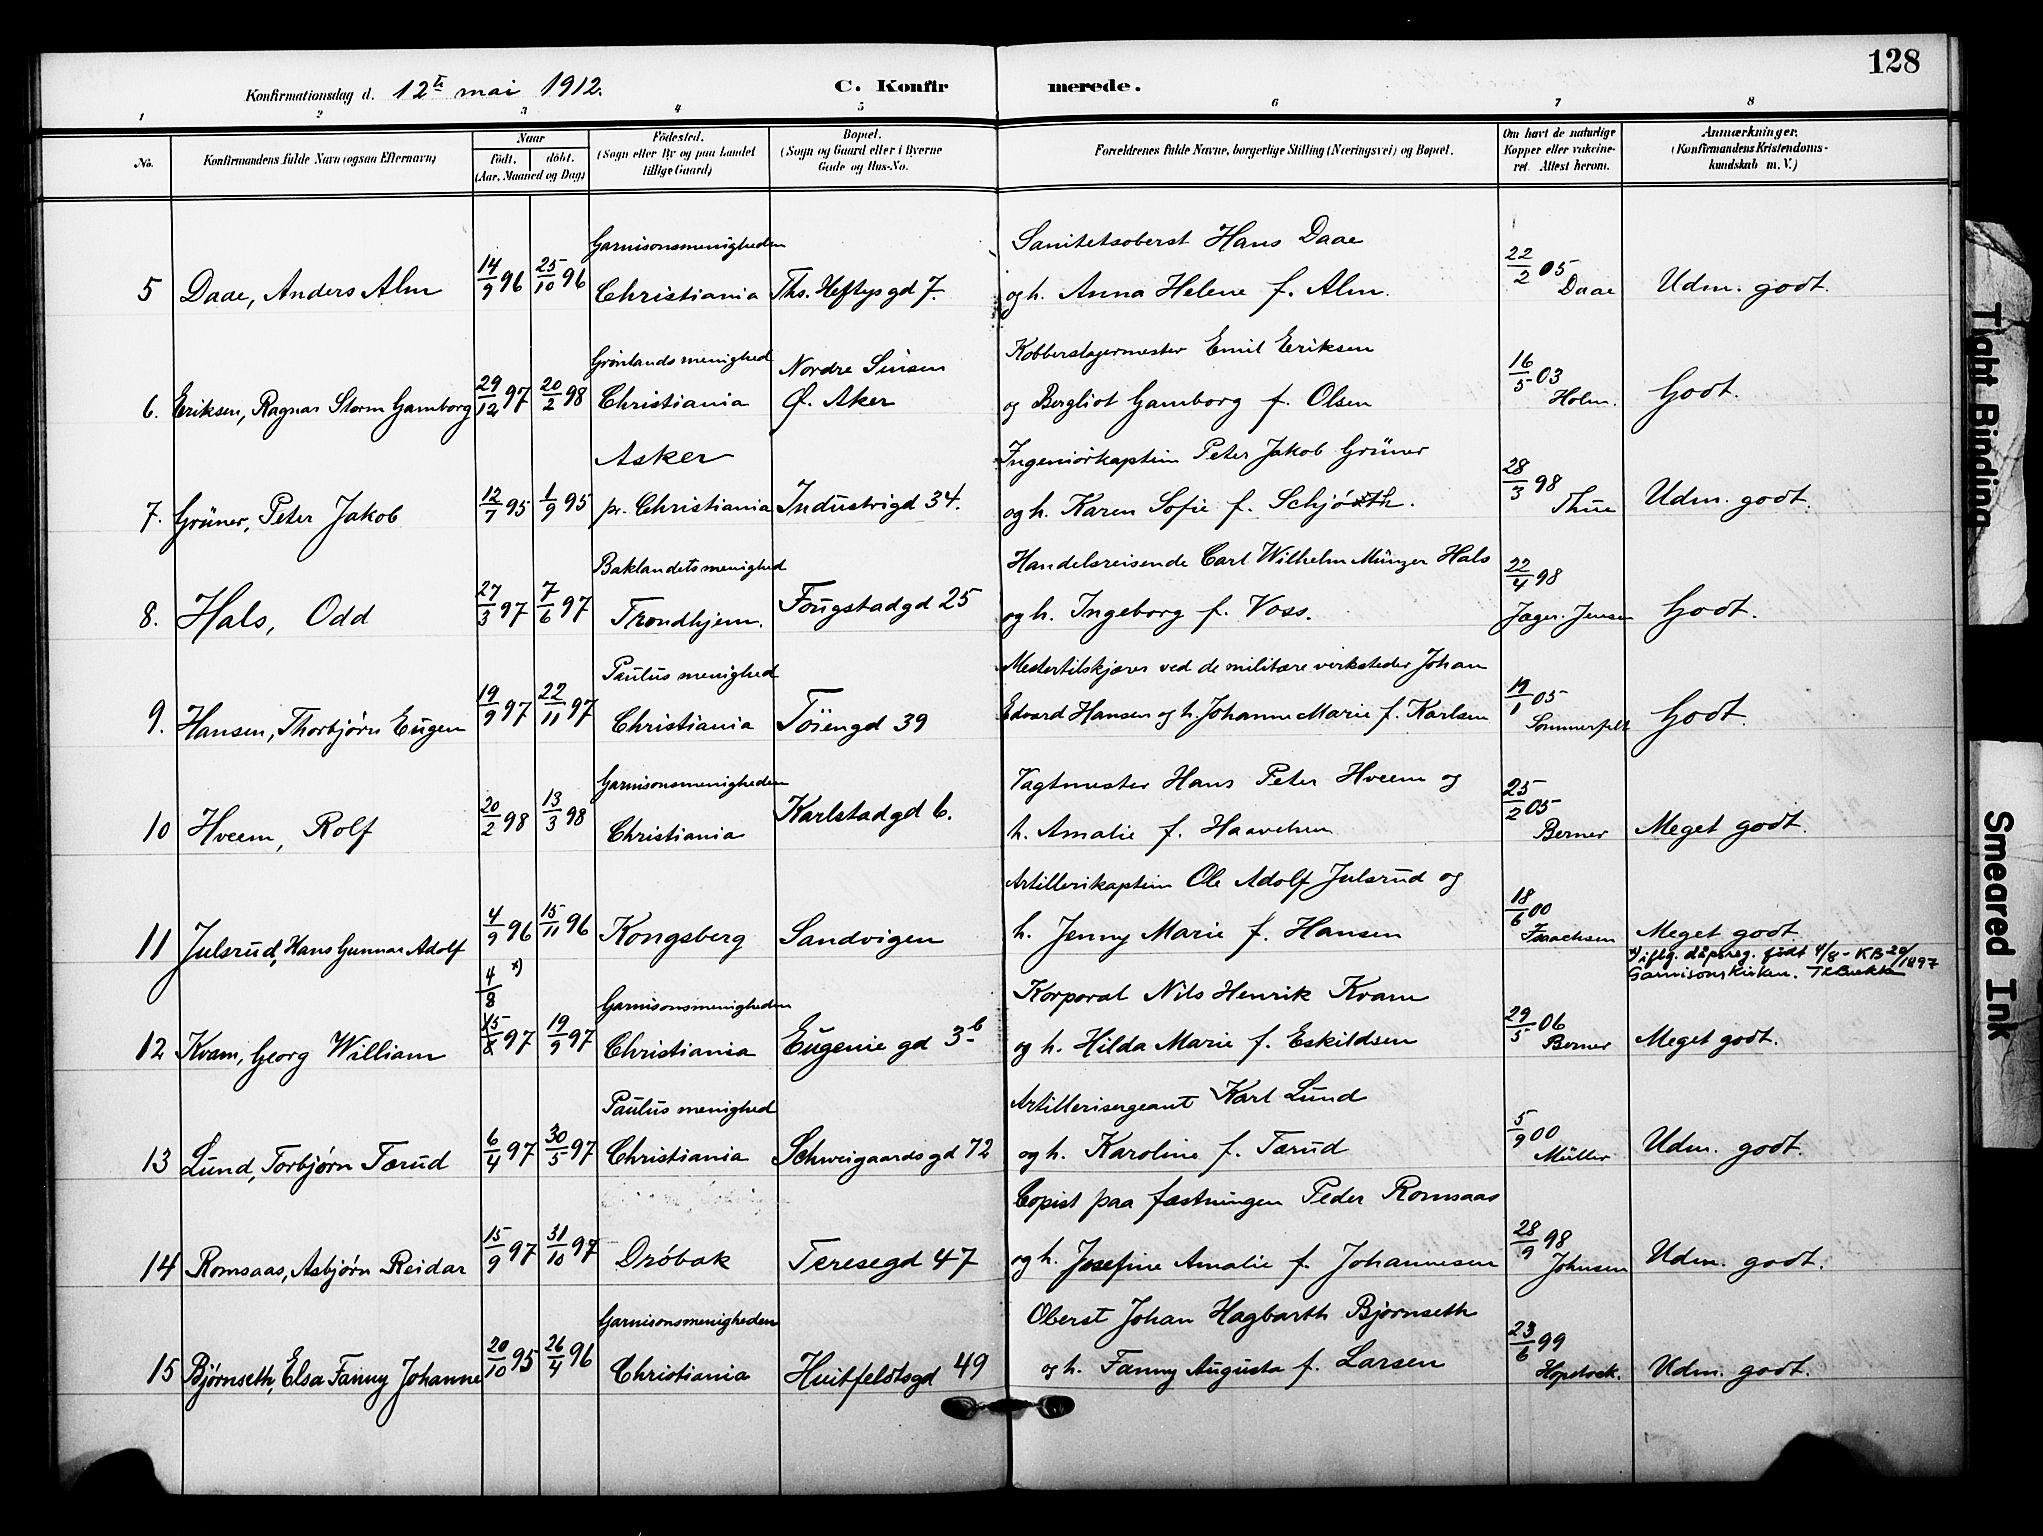 128
Konfirmationsdag d. 12te mai 1912. C. Konfirmerede.
1 2 3 4 5 6 7 8
No. Konfirmandens fulde Navn (ogsaa Efternavn) Naar født, døbt. (Aar, Maaned og Dag) Fødested. (Sogn eller By og paa Landet tillige Gaard) Bopæl. (Sogn og Gaard eller i Byerne Gade og Hus-No. Forældrenes fulde Navne, borgerlige Stilling (Næringsvei) og Bopæl. Om havt de naturlige Kopper eller vakcineret. Attest herom. Anmærkninger. (Konfirmandens Kristendomskundskab m. V.)
Garnisonsmenigheden Sanitetsoberst Hans Daae
5 Daae, Anders Alm 14/9 96 25/10 96 Christiania Ths. Heftys gd 7. og h. Anna Helene f. Alm. 22/2 05 Daae Udm. godt.
Grønlands menighed Nordre Sinsen Kobberslagermester Emil Eriksen
6. Eriksen, Ragnar Storm Gamborg 29/12 97 20/2 98 Christiania Ø. Aker og Bergliot Gamborg f. Olsen 16/5 03 Holm. Godt.
Asker Ingeniørkaptein Peter Jakob Grüner
7. Grüner, Peter Jakob 12/7 95 1/9 95 pr. Christiania Industrigd 34. og h. Karen Sofie f. Schjøth. 28/3 98 Thue Udm. godt.
Baklandets menighed Handelsreisende Carl Wilhelm Münzer Hals
8. Hals, Odd 27/3 97 7/6 97 Trondhjem. Fougstadgd 25 og h. Ingeborg f. Voss. 22/4 98 Jæger-Jensen Godt.
Paulus menighed Mestertilskjærer ved de militære verksteder Johan
9. Hansen, Thorbjørn Eugen 19/9 97 22/11 97 Christiania Tøiengd 39 Edvard Hansen og h. Johanne Marie f. Karlsen 19/1 05 Sommerfelt Godt.
Garnisonsmenigheden Vagtmester Hans Peter Hveem og
10 Hveem, Rolf 20/2 98 13/3 98 Christiania Karlstadgd 6. h. Amalie f. Haavelsen 25/2 05 Berner Meget godt.
Artillerikaptein Ole Adolf Julsrud og
11 Julsrud, Hans Gunnar Adolf 4/9 96 15/11 96 Kongsberg Sandvigen h. Jenny Marie f. Hansen 18/6 00 Isaachsen Meget godt.
4/8 x) x) iflg. dåpsreg. født 4/8 - KB 20/1897 Garnisonskirken.
Garnisonsmenigheden Korporal Nils Henrik Kvam
12 Kvam, Georg William 15/8 97 19/9 97 Christiania Eugenie gd 3b og h. Hilda Marie f. Eskildsen 29/5 06 Berner Meget godt.
Paulus menighed Artillerisergeant Karl Lund
13 Lund, Torbjørn Tærud 6/4 97 30/5 97 Christiania Schweigaardsgd 72 og h. Karoline f. Tærud 5/9 00 Müller Udm. godt.
Copist paa fæstningen Peder Romsaas
14 Romsaas, Asbjørn Reidar 15/9 97 31/10 97 Drøbak Teresegd 47 og h. Josefine Amalie f. Johannesen 28/9 98 Johnsen Udm. godt.
Garnisonsmenigheden Oberst Johan Hagbarth Bjørnseth
15 Bjørnseth, Elsa Fanny Johanne 20/10 95 26/4 96 Christiania Huitfeldtsgd 49 og h. Fanny Augusta f. Larsen 23/6 99 Hopstock. Udm. godt.
Tight Binding
Smeared Ink